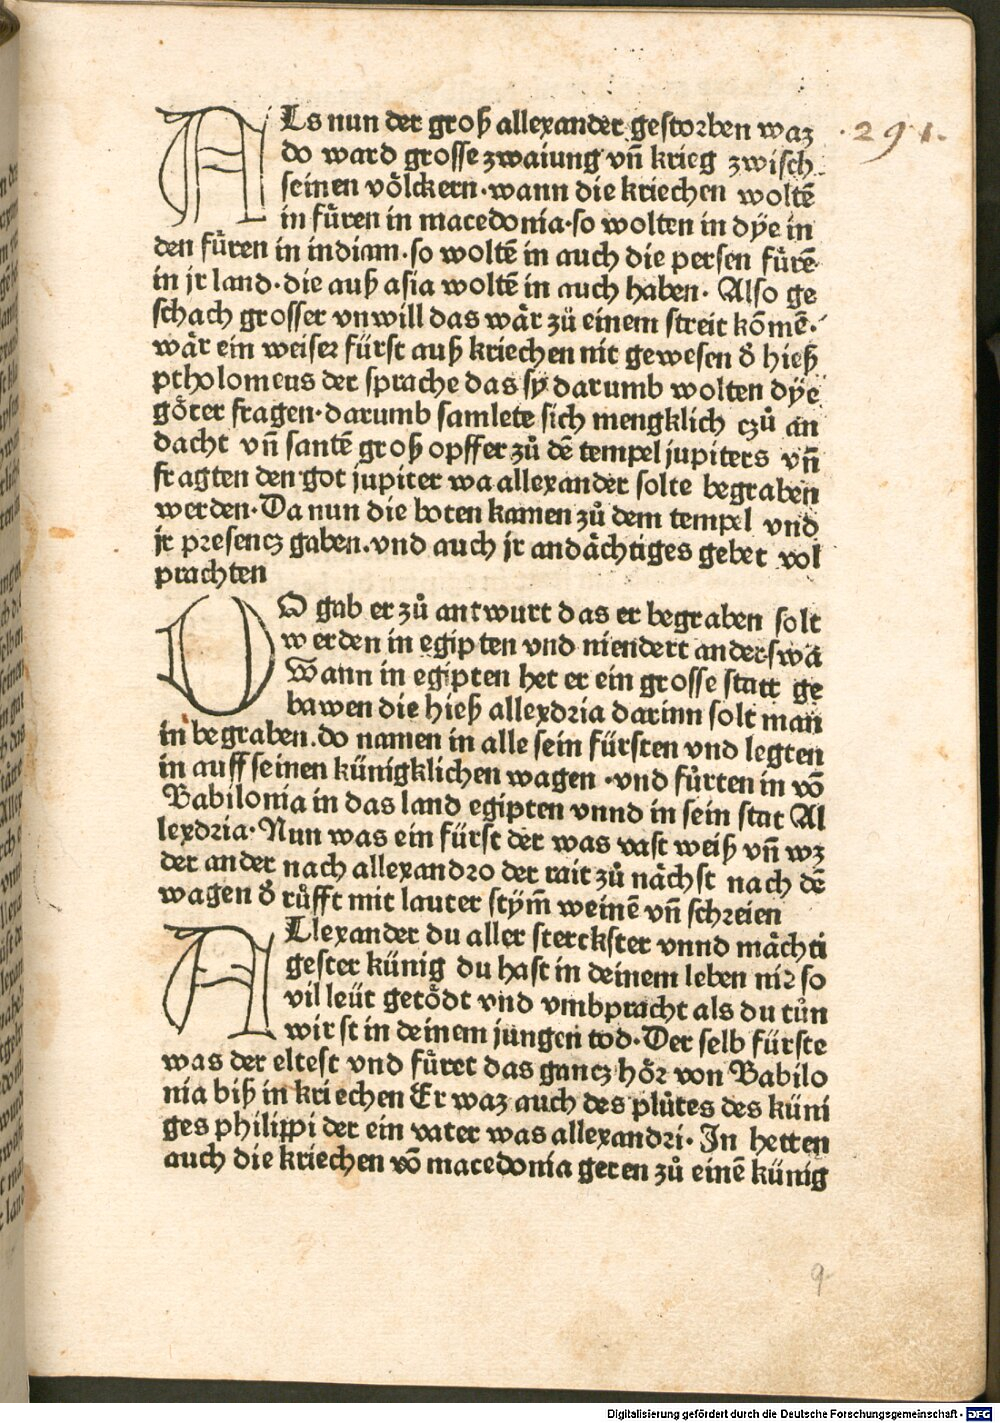 .291.
ALs nun der groß allexander gestorben waz
do ward grosse zwaiung vñ krieg zwisch
seinen völckern·wann die kriechen woltē
in fůren in macedonia·so wolten in dÿe in
den fůren in indiam·so woltē in auch die persen fůrē
in jr land·die auß asia woltē in auch haben· Also ge
schach grosser vnwill das wår zů einem streit kōmē·
wår ein weiser fürst auß kriechen nit gewesen d̄ hieß
ptholomeus der sprache das sy darumb wolten dÿe
götter fragen·darumb samlete sich mengklich czů an
dacht vñ santē groß opffer zů dē tempel jupiters vñ
fragten den got jupiter wa allexander solte begraben
werden·Da nun die boten kamen zů dem tempel vnd
jr presencz gaben·vnd auch jr andåchtiges gebet vol
prachten
DO gab er zů antwurt das er begraben solt
werden in egipten vnd niendert anderswa
Wann in egipten het er ein grosse statt ge
bawen die hieß allexdria darinn solt man
in begraben.do namen in alle sein fürsten vnd legten
in auff seinen künigklichen wagen ·vnd fůrten in vō
Babilonia in das land egipten vnnd in sein stat Al
lexdria·Nun was ein fürst der was vast weiß vñ wz
der ander nach allexandro der rait zů nåchst nach dē
wagen d̄ růfft mit lauter stym̄ weinē vñ schreien
ALlexander du aller sterckster vnnd måchti
gester künig du hast in deinem leben nit so
vil leüt getödt vnd vmbpracht als du tůn
wirst in deinem jungen tod·Der selb fürste
was der eltest vnd fůret das gancz hör von Babilo
nia biß in kriechen Er waz auch des plůtes des küni
ges philippi der ein vater was allexandri· In hetten
auch die kriechen vō macedonia geren zů einē künig
9
Digitalisierung gefördert durch die Deutsche Forschungsgemeinschaft - DFG